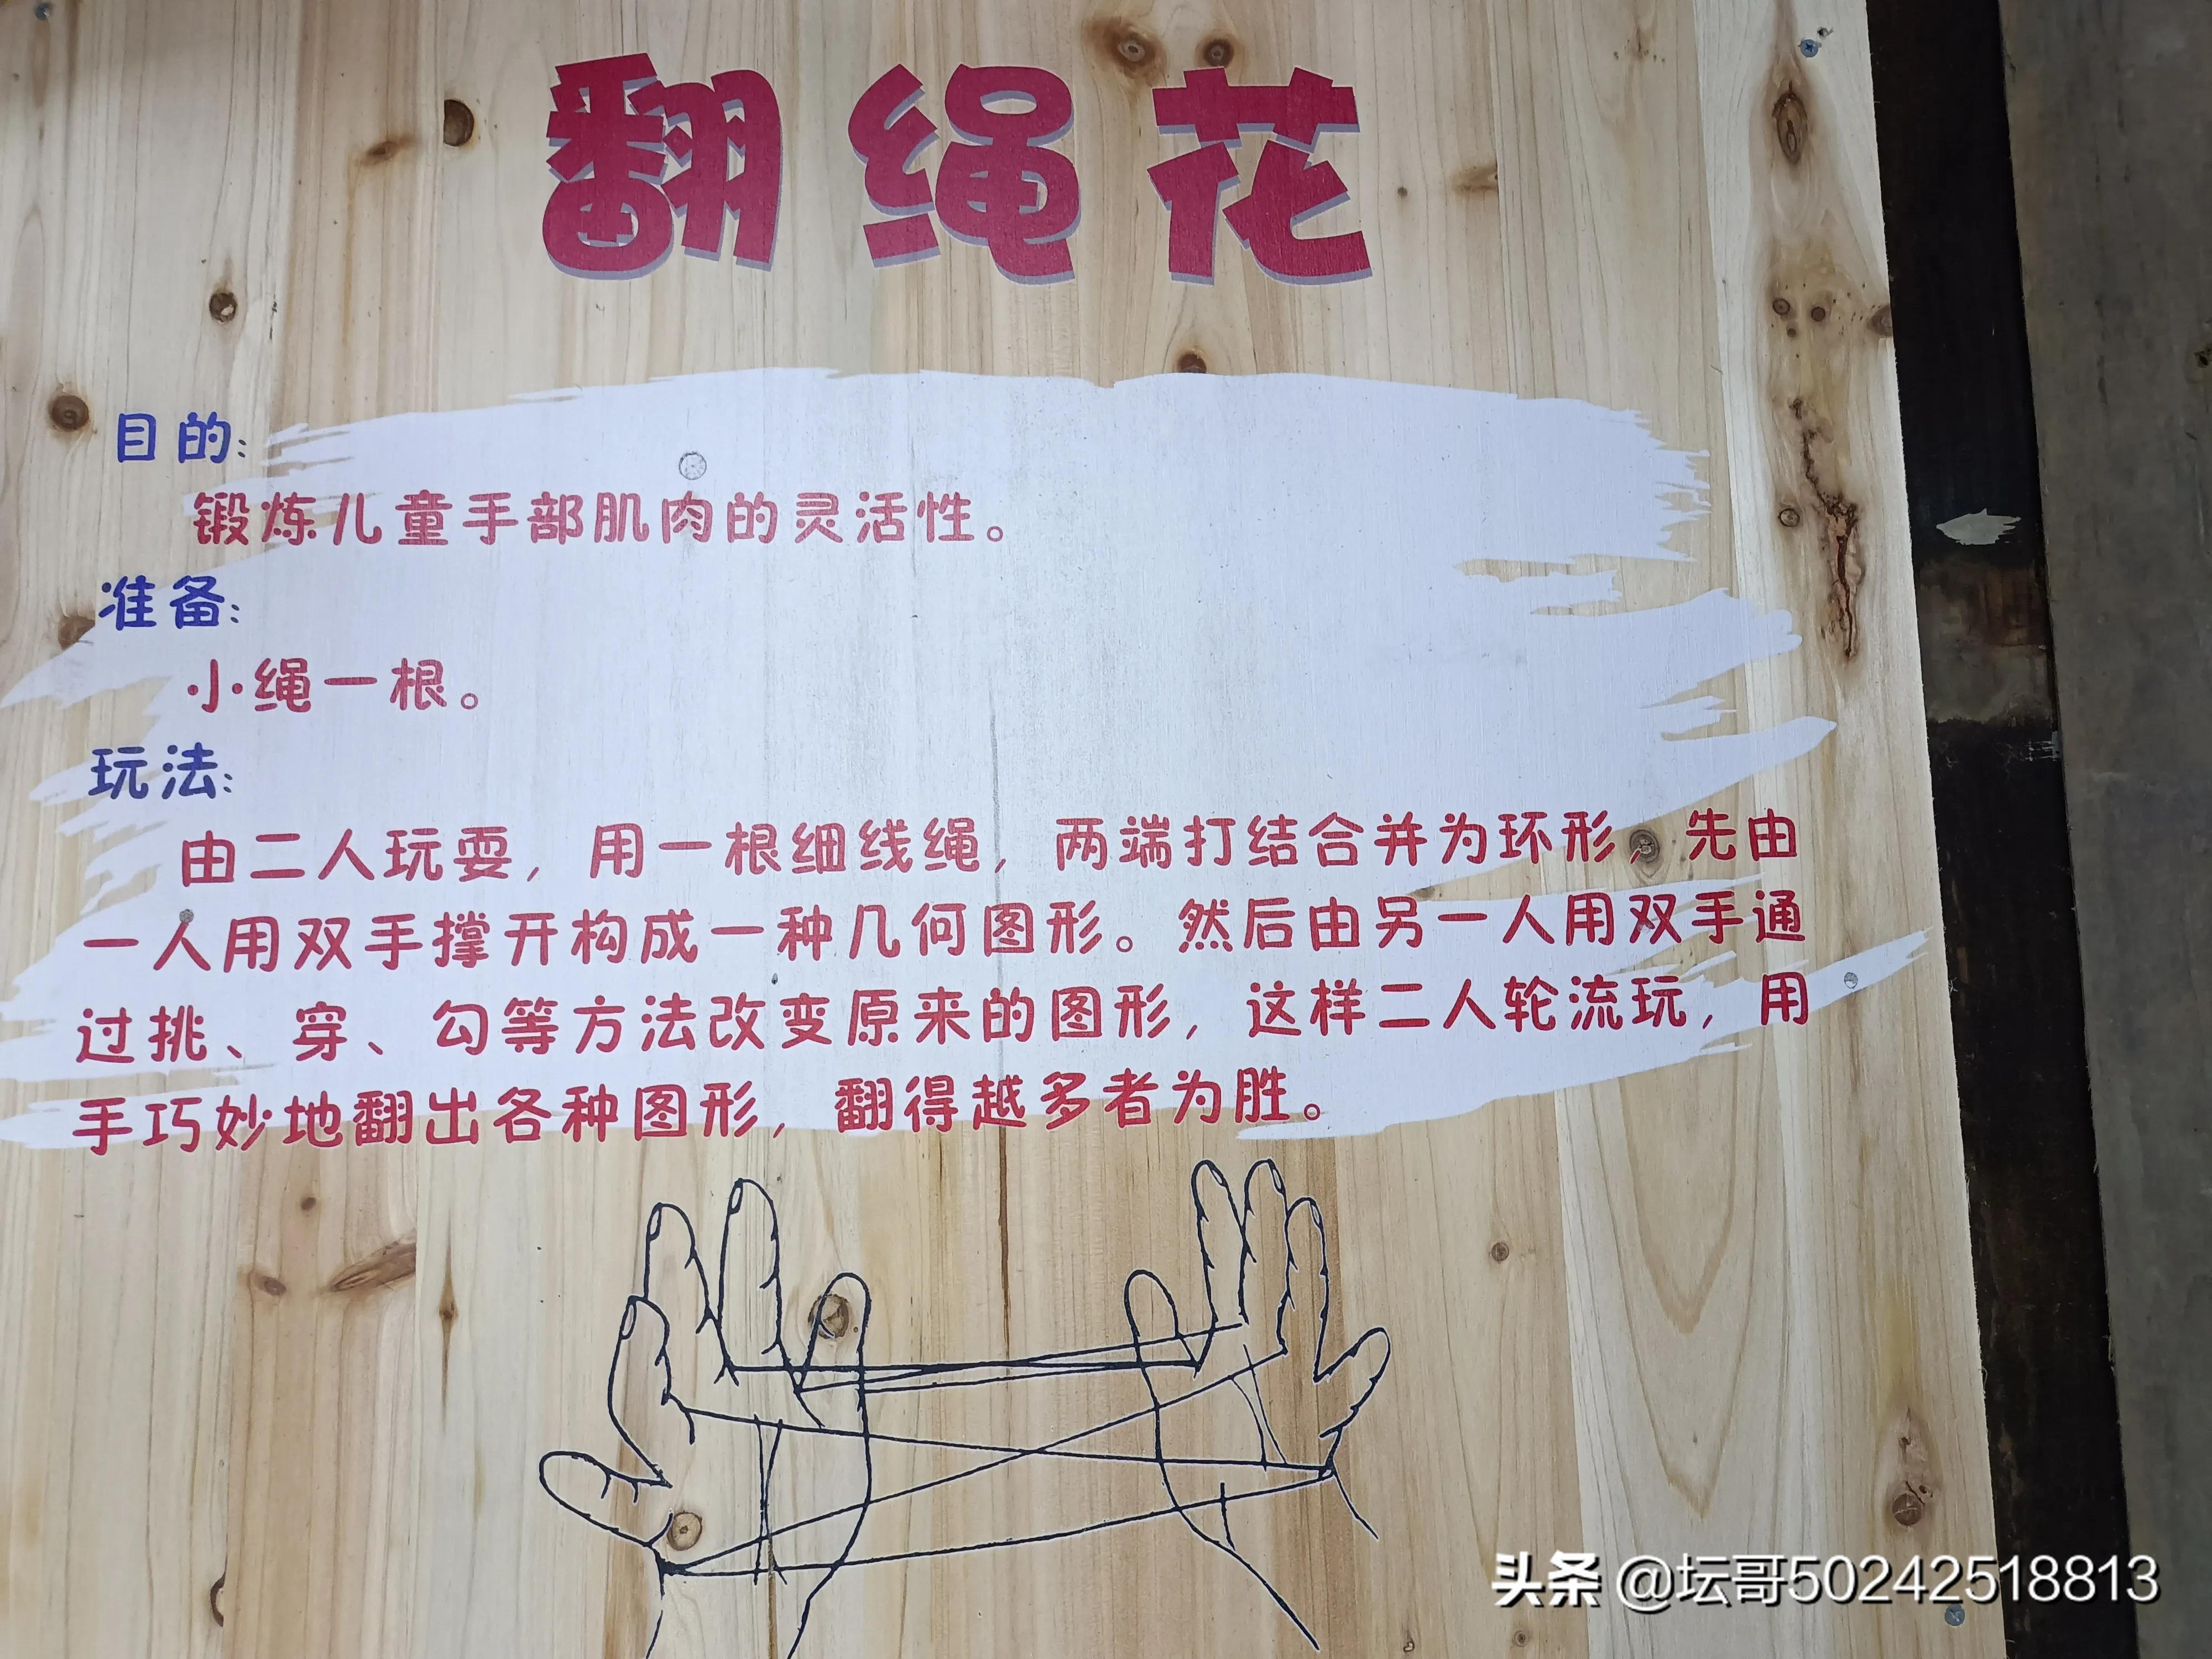 翻绳花
目的:
锻炼儿童手部肌肉的灵活性。
准备:
小绳一根。
玩法:
由二人玩耍，用一根细线绳，两端打结合并为环形，先由
一人用双手撑开构成一种几何图形。然后由另一人用双手通
过挑、穿、勾等方法改变原来的图形，这样二人轮流玩，用
手巧妙地翻出各种图形，翻得越多者为胜。
头条 @坛哥50242518813